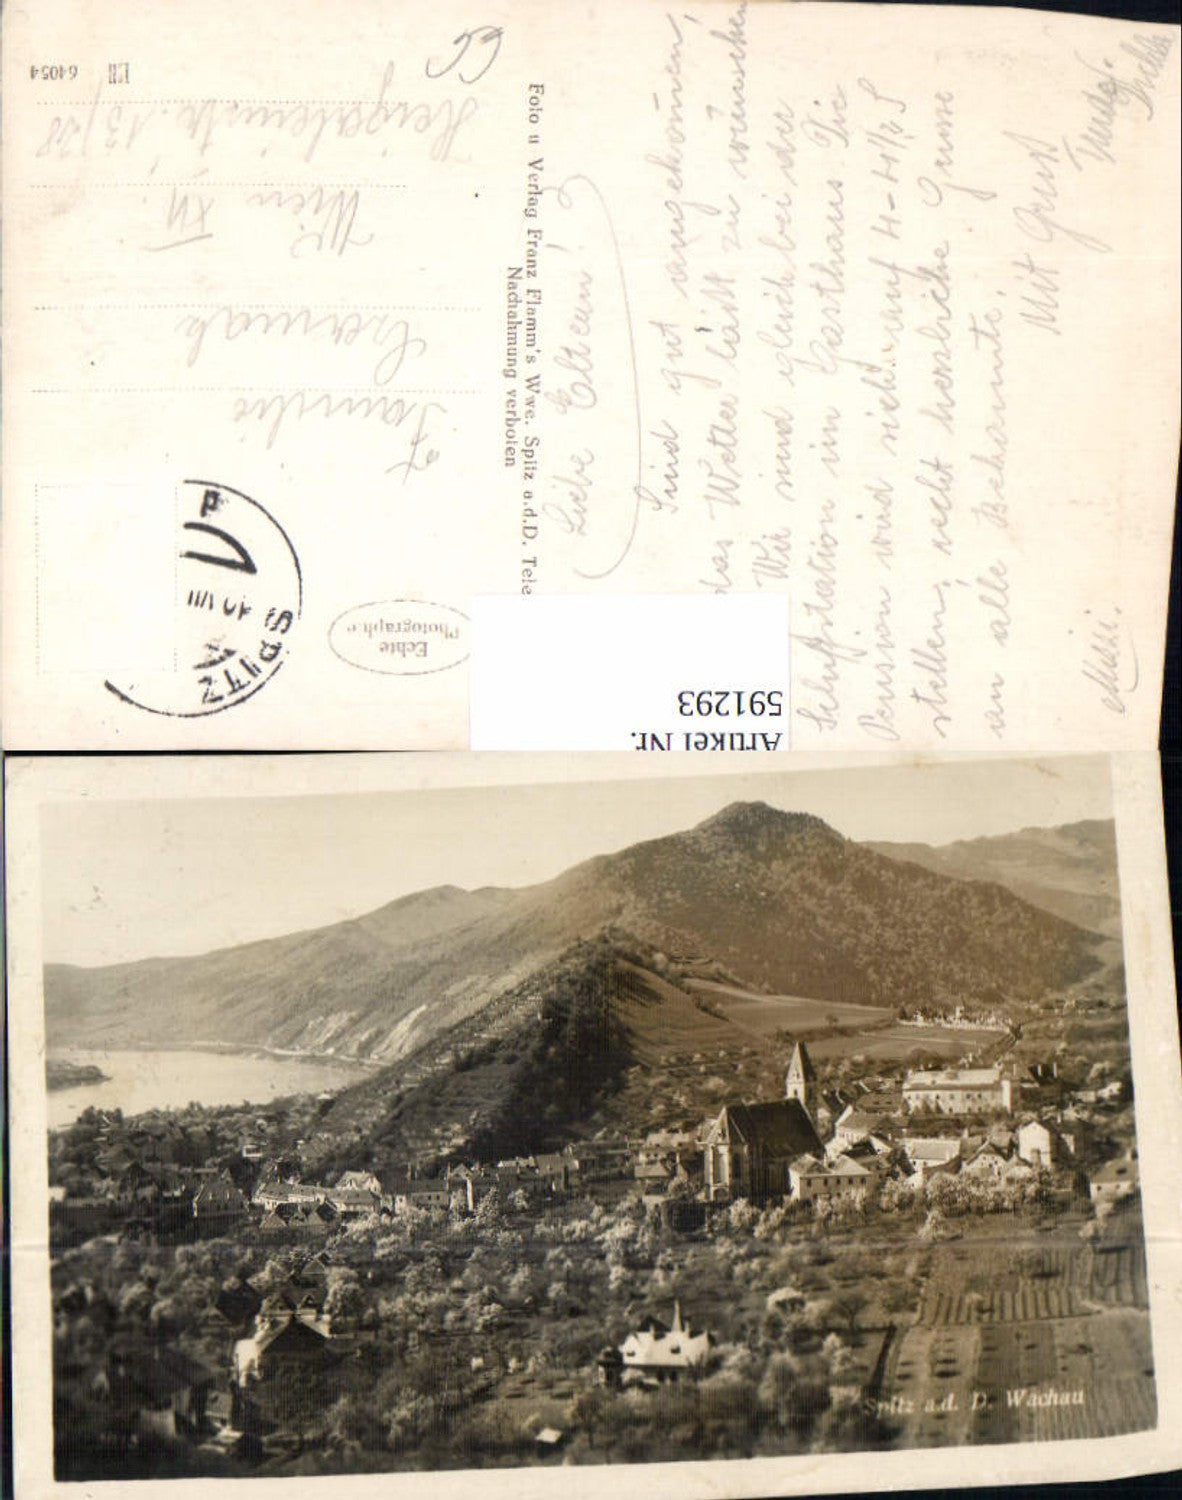 Liebe Eltern!
Sind gut angekommen,
das Wetter läßt zu wünschen
Wir sind gleich bei der
Schiffstation im Gasthaus Die
Pension wird sich auf 4-4½ S
stellen, recht herzliche Grüsse
an alle Bekannte.
Mit Gruss
Mussi.
Foto u Verlag Franz Flamm's Wwe. Spitz a.d.D. Tele
Nachahmung verboten
Echte
Photographie
SPITZ
Familie
Wien XVI.
13/38
64054
Artikel Nr.
591293
Spitz a.d. D. Wachau